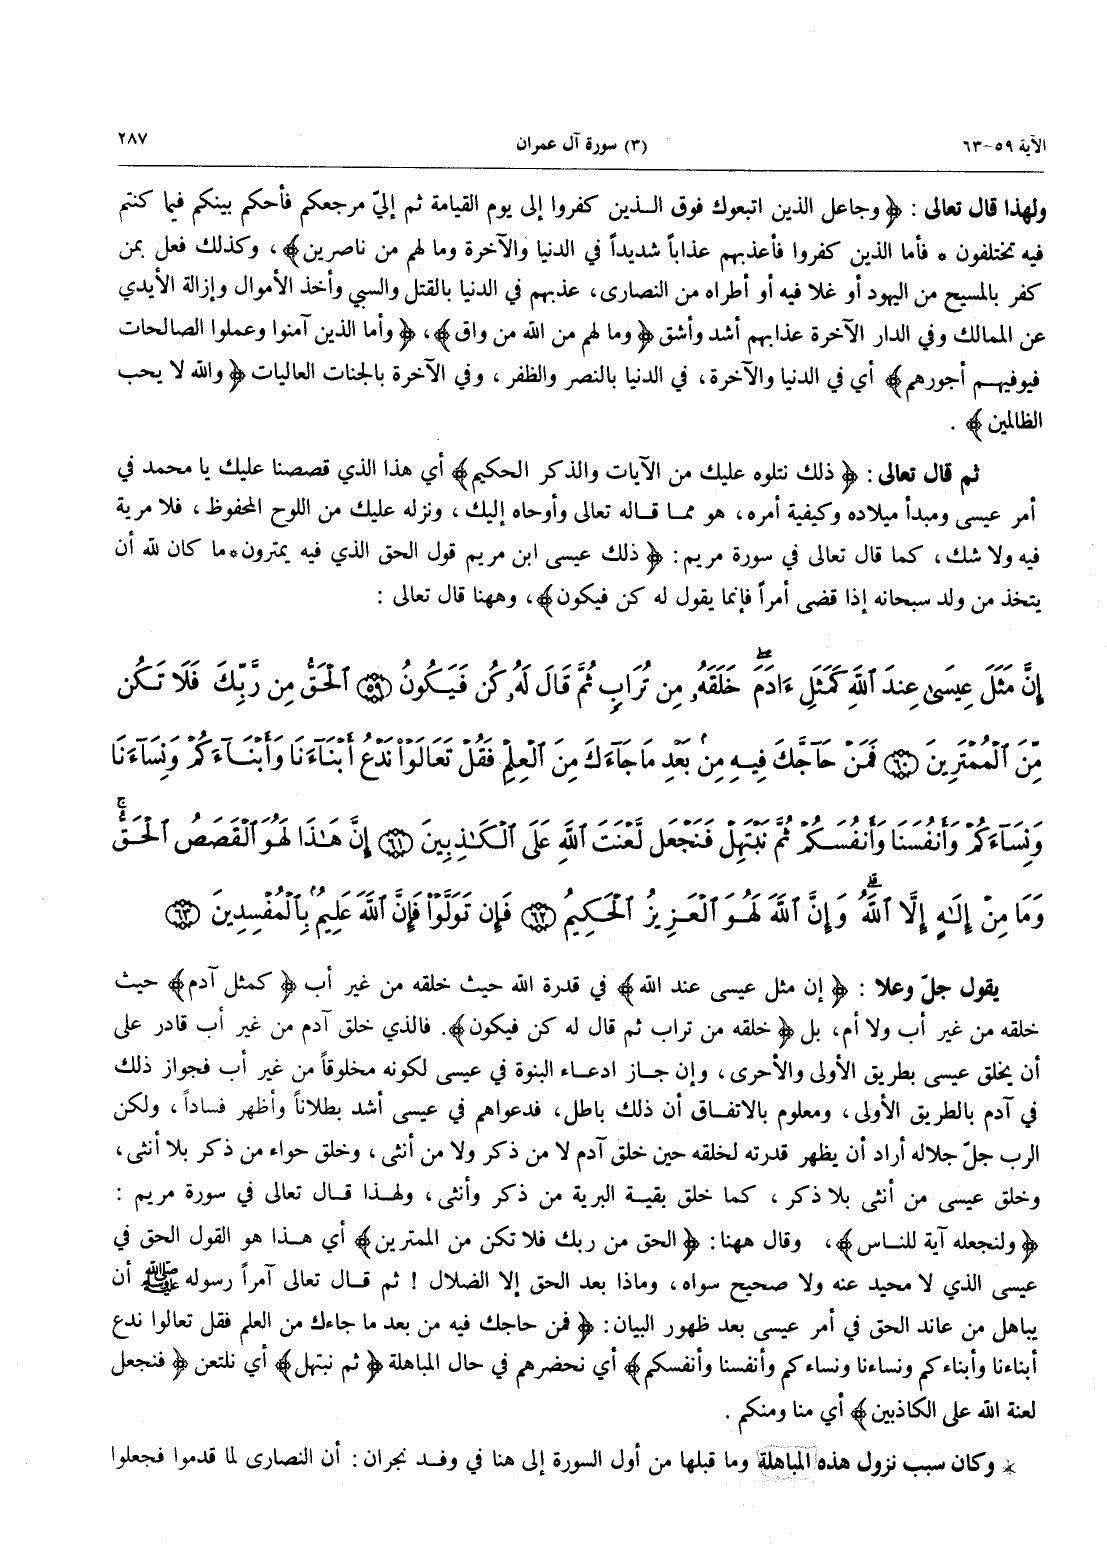 الآية ٥٩-٦٣ (٣) سورة آل عمران ٢٨٧
ولهذا قال تعالى : ﴿ وجاعل الذين اتبعوك فوق الـذين كفروا إلى يوم القيامة ثم إليّ مرجعكم فأحكم بينكم فيما كنتم
فيه تختلفون * فأما الذين كفروا فأعذبهم عذاباً شديداً في الدنيا والآخرة وما لهم من ناصرين﴾ ، وكذلك فعل بمن
كفر بالمسيح من اليهود أو غلا فيه أو أطراه من النصارى، عذبهم في الدنيا بالقتل والسبي وأخذ الأموال وإزالة الأيدي
عن الممالك وفي الدار الآخرة عذابهم أشد وأشق ﴿ وما لهم من الله من واق﴾، ﴿ وأما الذين آمنوا وعملوا الصالحات
فيوفيهـم أجورهم﴾ أي في الدنيا والآخرة، في الدنيا بالنصر والظفر ، وفي الآخرة بالجنات العاليات ﴿ والله لا يحب
الظالمين﴾ .
ثم قال تعالى : ﴿ ذلك نتلوه عليك من الآيات والذكر الحكيم﴾ أي هذا الذي قصصنا عليك يا محمد في
أمر عيسى ومبدأ ميلاده وكيفية أمره، هو ممـا قـاله تعالى وأوحاه إليك ، ونزله عليك من اللوح المحفوظ ، فلا مرية
فيه ولا شك، كما قال تعالى في سورة مريم: ﴿ ذلك عيسى ابن مريم قول الحق الذي فيه يمترون*ما كان لله أن
يتخذ من ولد سبحانه إذا قضى أمراً فإنما يقول له كن فيكون﴾، وههنا قال تعالى :
إِنَّ مَثَلَ عِيسَىٰ عِندَ ٱللَّهِ كَمَثَلِ ءَادَمَ ۖ خَلَقَهُۥ مِن تُرَابٍ ثُمَّ قَالَ لَهُۥ كُن فَيَكُونُ ﴿٥٩﴾ ٱلْحَقُّ مِن رَّبِّكَ فَلَا تَكُن
مِّنَ ٱلْمُمْتَرِينَ ﴿٦٠﴾ فَمَنْ حَآجَّكَ فِيهِ مِنۢ بَعْدِ مَا جَآءَكَ مِنَ ٱلْعِلْمِ فَقُلْ تَعَالَوْا۟ نَدْعُ أَبْنَآءَنَا وَأَبْنَآءَكُمْ وَنِسَآءَنَا
وَنِسَآءَكُمْ وَأَنفُسَنَا وَأَنفُسَكُمْ ثُمَّ نَبْتَهِلْ فَنَجْعَل لَّعْنَتَ ٱللَّهِ عَلَى ٱلْكَـٰذِبِينَ ﴿٦١﴾ إِنَّ هَـٰذَا لَهُوَ ٱلْقَصَصُ ٱلْحَقُّ ۚ
وَمَا مِنْ إِلَـٰهٍ إِلَّا ٱللَّهُ ۚ وَإِنَّ ٱللَّهَ لَهُوَ ٱلْعَزِيزُ ٱلْحَكِيمُ ﴿٦٢﴾ فَإِن تَوَلَّوْا۟ فَإِنَّ ٱللَّهَ عَلِيمٌۢ بِٱلْمُفْسِدِينَ ﴿٦٣﴾
يقول جلّ وعلا : ﴿ إن مثل عيسى عند الله﴾ في قدرة الله حيث خلقه من غير أب ﴿ كمثل آدم﴾ حيث
خلقه من غير أب ولا أم، بل ﴿ خلقه من تراب ثم قال له كن فيكون﴾. فالذي خلق آدم من غير أب قادر على
أن يخلق عيسى بطريق الأولى والأحرى ، وإن جـاز ادعـاء البنوة في عيسى لكونه مخلوقاً من غير أب فجواز ذلك
في آدم بالطريق الأولى، ومعلوم بالاتفـاق أن ذلك باطل، فدعواهم في عيسى أشد بطلاناً وأظهر فساداً ، ولكن
الرب جلّ جلاله أراد أن يظهر قدرته لخلقه حين خلق آدم لا من ذكر ولا من أنثى ، وخلق حواء من ذكر بلا أنثى،
وخلق عيسى من أنثى بلا ذكر ، كما خلق بقيـة البرية من ذكر وأنثى ، ولهـذا قـال تعالى في سورة مريم :
﴿ ولنجعله آية للنـاس﴾ ، وقال ههنا: ﴿ الحق من ربك فلا تكن من الممترين﴾ أي هـذا هو القول الحق في
عيسى الذي لا محيد عنه ولا صحيح سواه، وماذا بعد الحق إلا الضلال ! ثم قـال تعالى آمراً رسوله ﷺ أن
يباهل من عاند الحق في أمر عيسى بعد ظهور البيان: ﴿ فمن حاجك فيه من بعد ما جاءك من العلم فقل تعالوا ندع
أبناءنا وأبناءكم ونساءنا ونساءكم وأنفسنا وأنفسكم﴾ أي نحضرهم في حال المباهلة ﴿ ثم نبتهل﴾ أي نلتعن ﴿ فنجعل
لعنة الله على الكاذبين﴾ أي منا ومنكم .
* وكان سبب نزول هذه المباهلة وما قبلها من أول السورة إلى هنا في وفـد نجران : أن النصارى لما قدموا فجعلوا